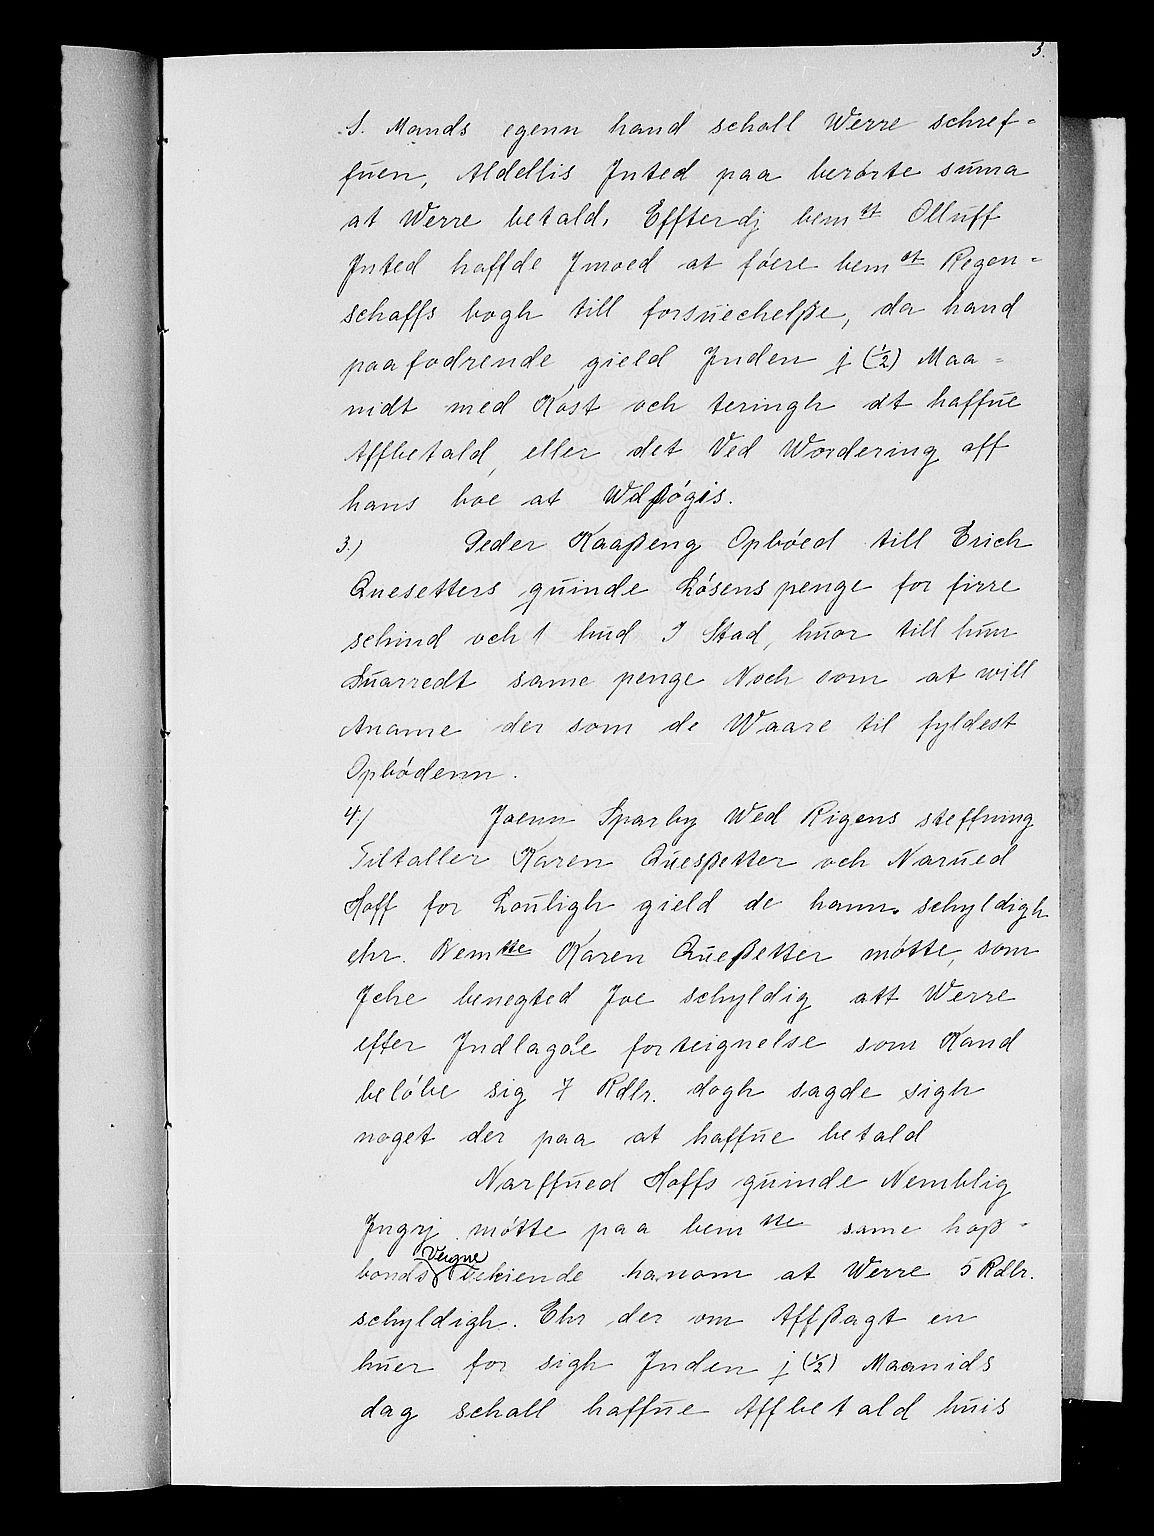 3.
S. Mands egenn hand schall Werre schref-
fuen, Aldellis Inted paa berørte suma
at Werre betald. Effterdj bem st Olluff
Inted haffde Imoed at føere bem st Regen-
schaffs bogh till forsuechelße, da hand
paafodrende gield Inden j (½) Maa-
nidt med Kost och teringh at haffue
Affbetald, eller det Ved Wordering aff
hans boe at Wdßøgis.
3.) Peder Kaaßeng Opbøed till Erich
Quesetters quinde Løsens penge for firre
schind och 1 hud I Stad, huor till hun
Suarredt same penge Noch som at will
Aname der som de Waare til fyldest
Opbødenn.
4.) Joenn Sparby Wed Rigens steffning
Tiltaller Karen Quesßetter och Narued
Hoff for Louligh gield de hann schyldigh
ehr. Nem tte Karen Queßetter møtte, som
Iche benegted Joe schyldig att Werre
efter Indlagde forteignelse som Kand
beløbe sig 7 Rdlr. dogh sagde sigh
noget der paa at haffue betald
Narffued Hoffs quinde Nemblig
Ingrj møtte paa bem tte same hoß-
bonds Veigne vekiende hanom at Werre 5 Rdlr.
schyldigh. Ehr der om Affßagt en
huer for sigh Inden j (½) Maanids
dag schall haffue Affbetald huis